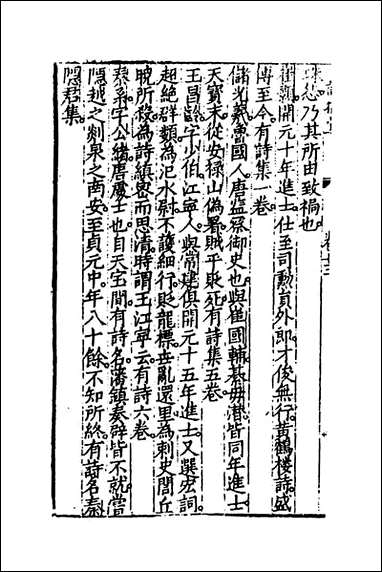 珠忿乃其所由致禍也
崔顥開元十年進士仕至司勲員外郎才俊無行黄鶴楼詩盛
傳至今有詩集一卷
儲光羲魯國人唐监察御史也與崔國輔綦毋潜皆同年進士
天寶末從安禄山偽署賊平貶死有詩集五卷
王昌齡字少伯江寧人與常建俱開元十五年進士又選宏詞
超絶群類為汜水尉不護細行貶龍標世亂還里為刺史閭丘
曉所殺為詩縝密而思清時謂王江寧云有詩六卷
秦系字公緒唐處士也自天宝間有詩名藩鎮奏辟皆不就嘗
隱越之剡泉之南安至貞元中年八十餘不知所終有詩名秦
隠君集